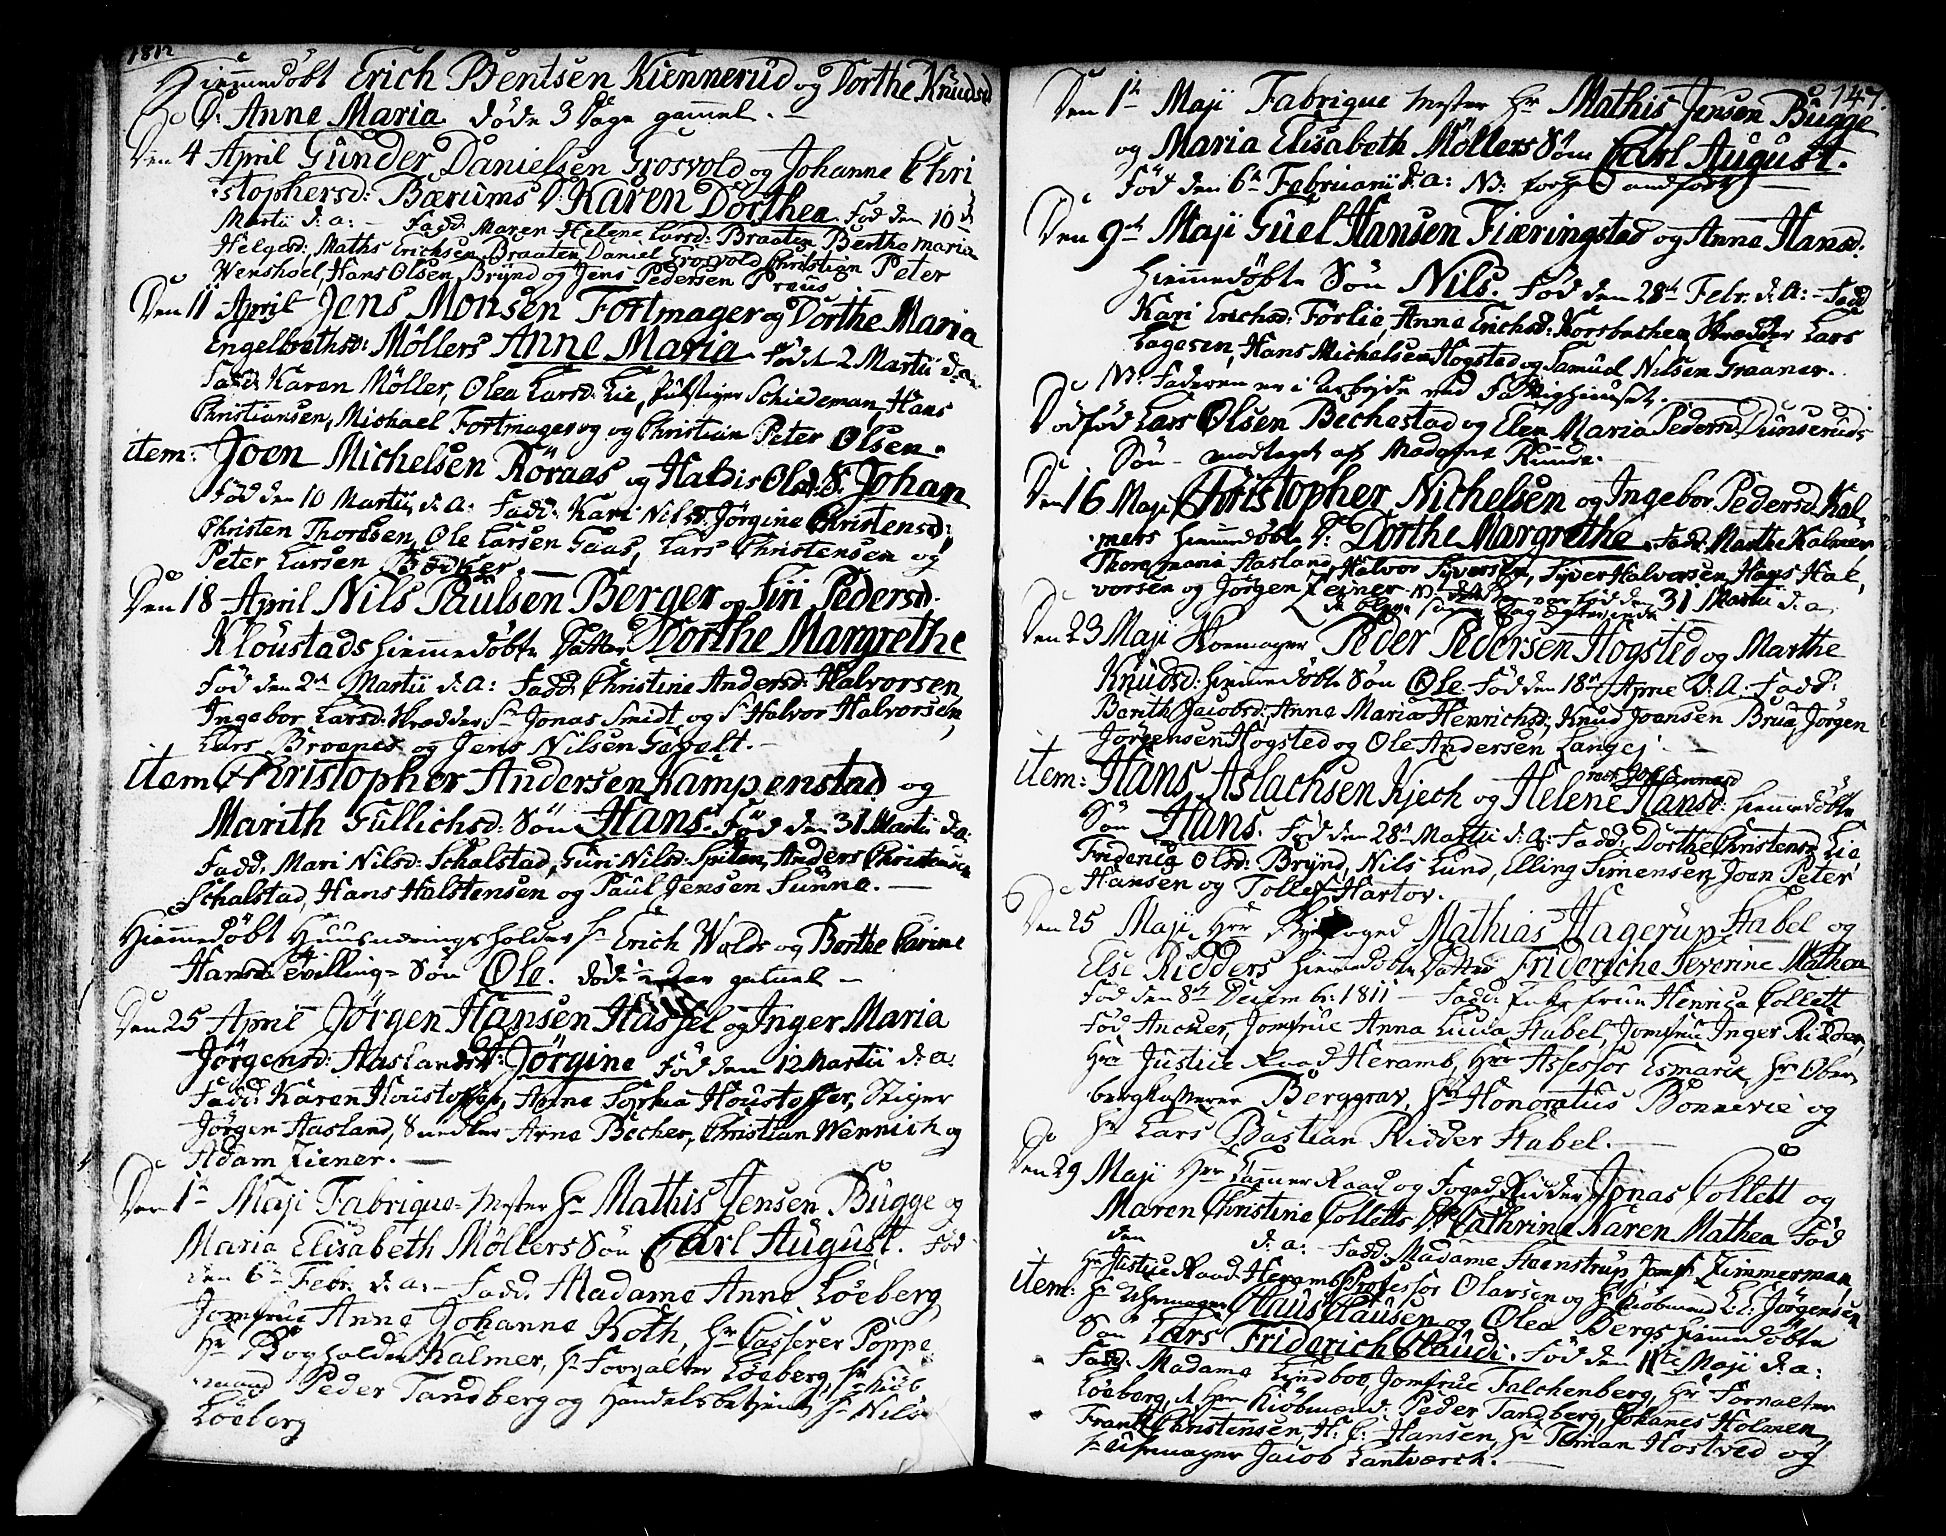 1812
Hiemmedøbt Erich Bentsen Kiennerud og Dorthe Knudsd
D: Anne Maria døde 3 Dage gammel.
Den 4 April Gunder Danielsen Grosvold og Johanne Chri
stophersd: Bærums D: Karen Dorthea Fød den 10de
Martii d: a: - Fadd: Maren Helene Larsd: Braaten, Berthe Maria
Helgesd: Mathis Erichsen Braaten, Daniel Grosvold, Christian Peter
Wenshoel, Hans Olsen Brynd og Jens Pedersen Praus
Den 11 April Jens Monsen Fortmager og Dorthe Maria
Engelbrethsd: Møllers Anne Maria Fød d 2 Martii d: a:
Fadd: Karen Møller, Olea Larsd: Lie, Schiedeman, Hans
Christiansen, Michael Fortmager og Christian Peter Olsen.
item: Joen Michelsen Röraas og Haldis Olsd: S: Johan
Fød den 10 Martii d: a: Fadd: Kari Nilsd: Jørgine Christensd:
Christen Thordsen, Ole Larsen Gaas, Lars Christensen og
Peter Larsen Bødker.
Den 18 April Nils Paulsen Berger og Siri Pedersd.
Kloustads hiemmedøbte Datter Dorthe Margrethe
Fød den 2de Martii d: a: Fadd: Christine Andersd: Halvorsen
Ingebor Larsd: Skrædder Sr Jonas Smidt og Sr Halvor Halvorsen,
Lars Braanes og Jens Nilsen Gapalt.
item Christopher Andersen Kampenstad og
Marith Gullichsd: Søn Hans. Fød den 31 Martii d: a:
Fadd: Mari Nilsd: Schalstad, Guri Nilsd: Spiten, Anders Christensen
Schalstad, Hans Halstensen og Paul Jensen Sunne.
Hiemmedøbt Huusnæringsholder Sr Erich Wolds og Berthe Carine
Hansd: Tvilling-Søn Ole. døde
Den 25 April Jørgen Hansen Hassel og Inger Maria
Jørgensd: Aaslands D: Jørgine Fød den 12 Martii d: a:
Fadd: Karen Houstoffer, Anne Sophia Houstoffer, Stiger
Jørgen Aasland, Snedker Arne Becher, Christian Wennich og
Adam Ziener.
Den 1te Maji Fabrique-Mester Hr Mathis Jensen Bugge og
Maria Elisabeth Møllers Søn Carl August. Fød
den 6te Febr. d: a: - Fadd: Madame Anne Löeberg
Jomfrue Anne Johanne Roth, Hr Casserer Poppe,
Hr Bogholder Kalmer, Hr Forvalter Löeberg, Hr Kiöb
mand Peder Tandberg og Handelsbetient Hr Nils
Löeberg
147.
Den 1te Maji Fabrique Mester Hr Mathis Jensen Bugge
og Maria Elisabeth Møllers Søn Carl August.
Fød den 6te Februarii d: a: NB:
Den 9de Maji Guel Hansen Fiæringstad og Anne Hansd.
hiemmedøbte Søn Nils. Fød den 28de Febr. d: a: - Fadd
Kari Erichsd: Førlie, Anne Erichsd: Korsbechen, Skrædder Lars
Lagesen, Hans Michelsen Hogsted og Samuel Nilsen Graaner.
NB: Faderen er i Arbejde ved Fattighuuset.
Dødfød Lars Olsen Bechestad og Elen Maria Pedersd: Dunseruds
Søn - modtaget af Madame Runde.
Den 16 Maji Christopher Nichelsen og Ingebor Pedersd: Kal
mers hiemmedøbte D: Dorthe Margrethe. Fadd: Marthe Kalmer
Thora Maria Aasland, Halvor Syversen, Syver Halvorsen, Hans Hal
vorsen og Jørgen Zeiner NB: var fød den 31 Martii d: a:
Den 23 Maji Skoemager Peder Pedersen Hogsted og Marthe
Knudsd: hiemmedøbte Søn Ole. Fød den 18de April d: a: Fadd:
Berith Jacobsd: Anne Maria Henrichsd: Knud Joensen Brua, Jørgen
Jørgensen Hogsted og Ole Andersen Langej.
item: Hans Aslachsen Kjech og Helene Hansd: hiemmedøbte
Søn Hans. Fød den 28de Martii d: a: Fadd: Dorthe Christensd: Lie
Friderica Olsd: Brynd, Nils Lund, Elling Simensen, Joen Peter
Hansen og Tollef Hartov.
Den 25 Maji Herr Byefoged Mathias Hagerup Stabel og
Else Ridders hiemmedøbte Datter Frideriche Severine Mathea
Fød den 8de Decembr: 1811 - Fadd: Enke frue Henrica Collett
Fød Ancker, Jomfrue Anna Lucia Stabel, Jomfrue Inger Ridder,
Hrr Justice Raad Heramb, Hrr Assessor Esmark, Hr Ober
bergkasserer Berggrav, Hr Honoratius Bonnevie og
Hr Lars Bastian Ridder Stabel.
Den 29 Maji Hrr Kammer Raad og Foged Ridder Jonas Collett og
Maren Christine Colletts D: Cathrine Karen Mathea Fød
den d: a: - Fadd: Madame Steenstrup, Jomfr Zimmerman,
Hr Justice Raad Heramb, Professor Olavsen og Hr Kiøbmand L: L: Jørgensen
item: Hr Uhrmager Claus Clausen og Olea Bergs hiemmedøbte
Søn Lars Friderich Claudi. Fød den 11te Maji d: a:
Fadd: Madame Lindboe, Jomfrue Falchenberg, Hr Forvalter
Löeberg, Herr Kiöbmand Peder Tandberg, Johanes Holmen
Frantz Christensen, H: C: Hansen, Hr Temian Hostved og
Hr Uhrmager Jacob Lantværch.